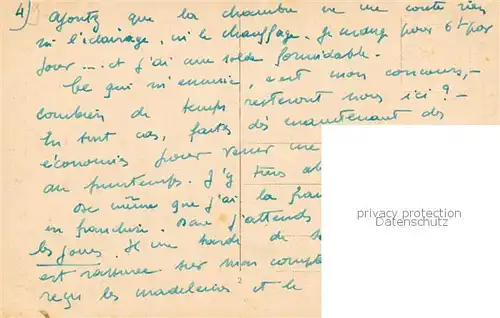 4) Ajoutez que la chambre ne me coute rien
ni l'éclairage, ni le chauffage. Je mange pour 6f par
jour .... et j'ai une solde formidable.
Ce qui m'ennuie, c'est mon concours, -
combien de temps resteront nous ici ? -
En tout cas, faites dès maintenant des
économies pour venir me
au printemps. J'y tiens
De même que j'ai la
en franchise. j'attends
les jours. de
est rassurée sur mon
reçu les madeleines et le
2
privacy protection
AnsichtskartenVersand.com